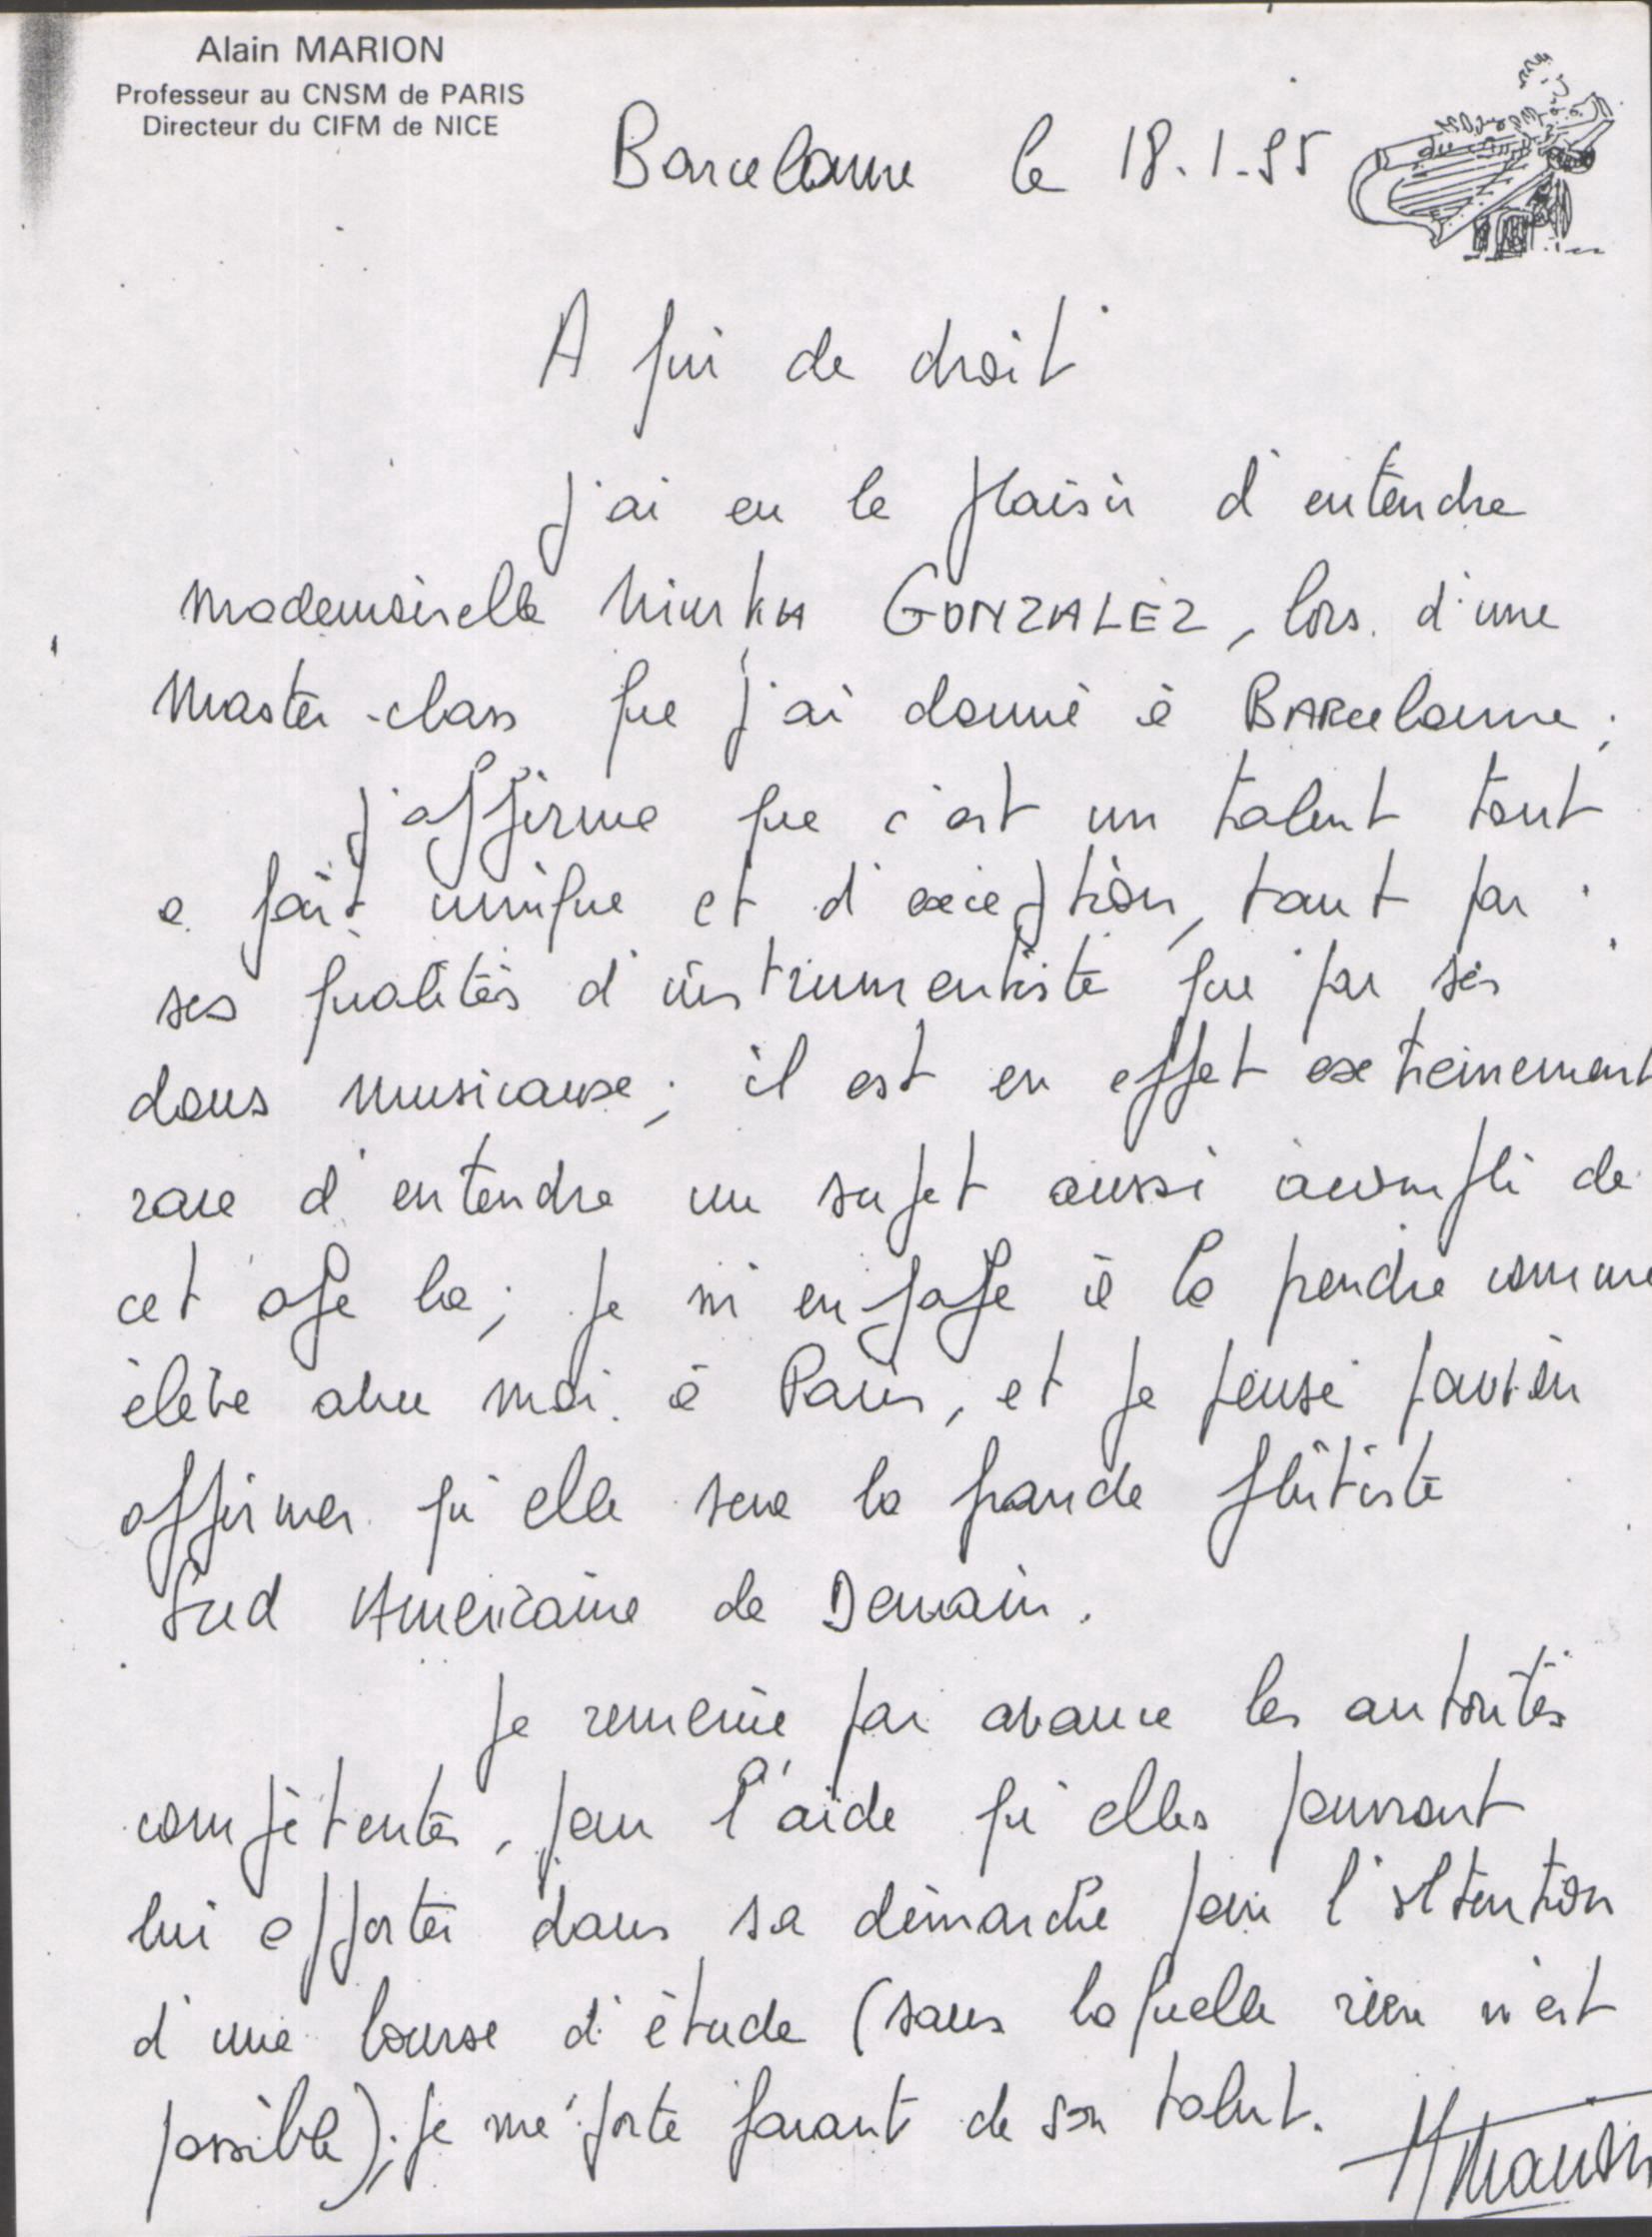 Alain MARION
Professeur au CNSM de PARIS
Directeur du CIFM de NICE
Barcelonne le 18.1.95
A qui de droit
J'ai eu le plaisir d'entendre
Mademoiselle Niurka GONZALEZ, lors d'une
Master-class que j'ai donné à BARcelonne ;
j'affirme que c'est un talent tout
a fait unique et d'exception, tant par
ses qualités d'instrumentiste que par ses
dons musicaux ; il est en effet extrèmement
rare d'entendre un sujet aussi accompli de
cet age la ; je m'engage à la prendre comme
élève avec moi à Paris, et je pense pouvoir
affirmer qu'elle sera la grande flûtiste
Sud Americaine de Demain.
Je remercie par avance les autorités
compétentes, pour l'aide qu'elles pourront
lui apporter dans sa démarche pour l'obtention
d'une bourse d'étude (sans laquelle rien n'est
possible) ; je me porte garant de son talent.
AMarion